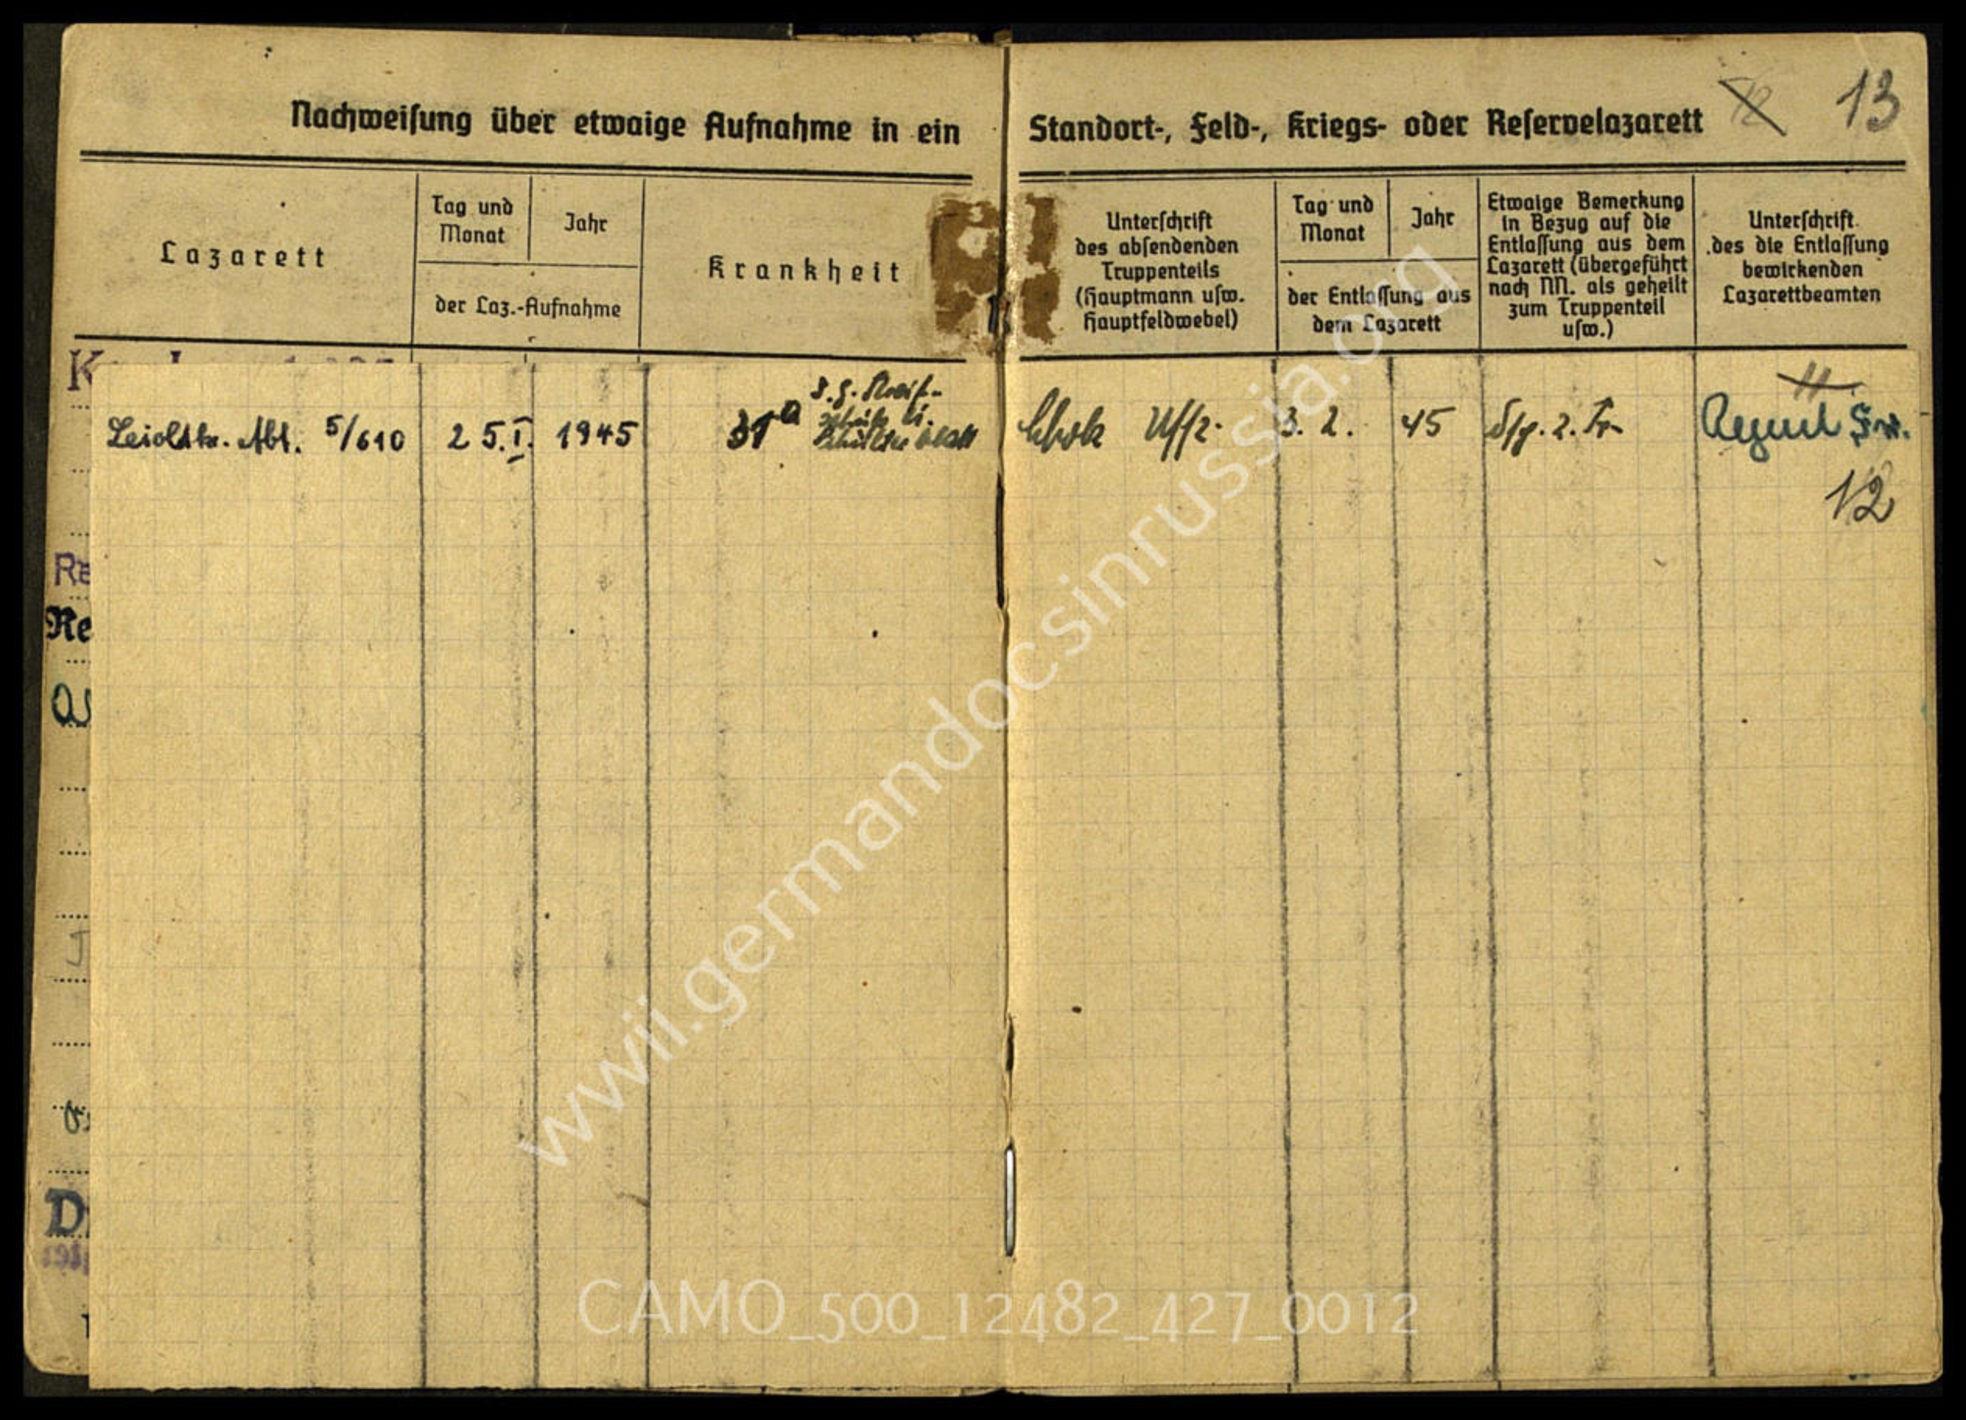 Nachweisung über etwaige Aufnahme in ein Standort-, Feld-, Kriegs- oder Reservelazarett
12
13
Lazarett
Tag und
Monat
Jahr
der Laz.-Aufnahme
Krankheit
Unterschrift
des absendenden
Truppenteils
(Hauptmann usw.
Hauptfeldwebel)
Tag und
Monat
Jahr
der Entlassung aus
dem Lazarett
Etwaige Bemerkung
in Bezug auf die
Entlassung aus dem
Lazarett (übergeführt
nach NN. als geheilt
zum Truppenteil
usw.)
Unterschrift
des die Entlassung
bewirkenden
Lazarettbeamten
11
Leichtkr. Abt. 5/610
25.I.
1945
31a
Uffz.
3. 2.
45
12
Re
Re
D
wwii.germandocsinrussia.org
CAMO_500_12482_427_0012